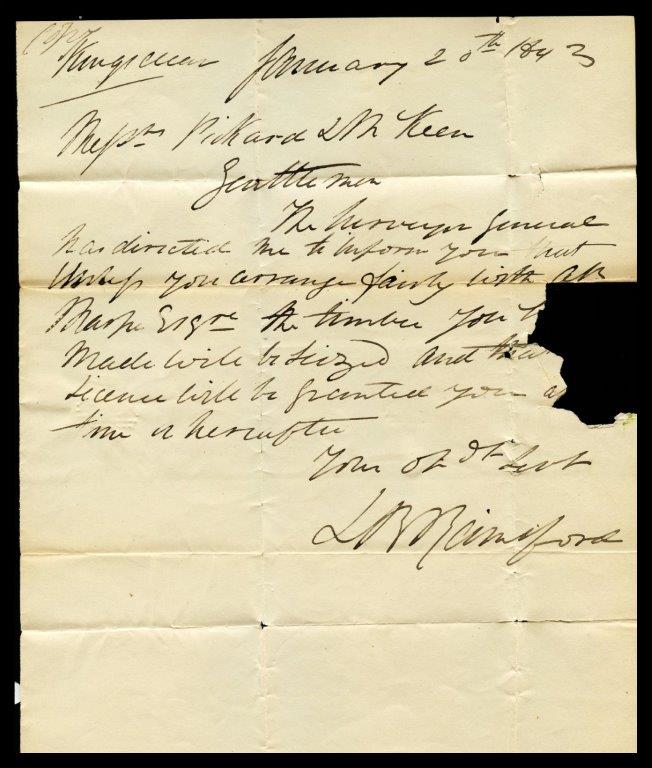 Copy
Kingsclear January 20th 1843
Messrs Pickard & McKeen
Gentlemen
The Surveyor General
has directed me to inform you that
Unless you arrange fairly with
Esqre the timber you
Made will be Seized and that
Licence will be granted you
time or hereafter
Your Obt Servt
L B Rainsford